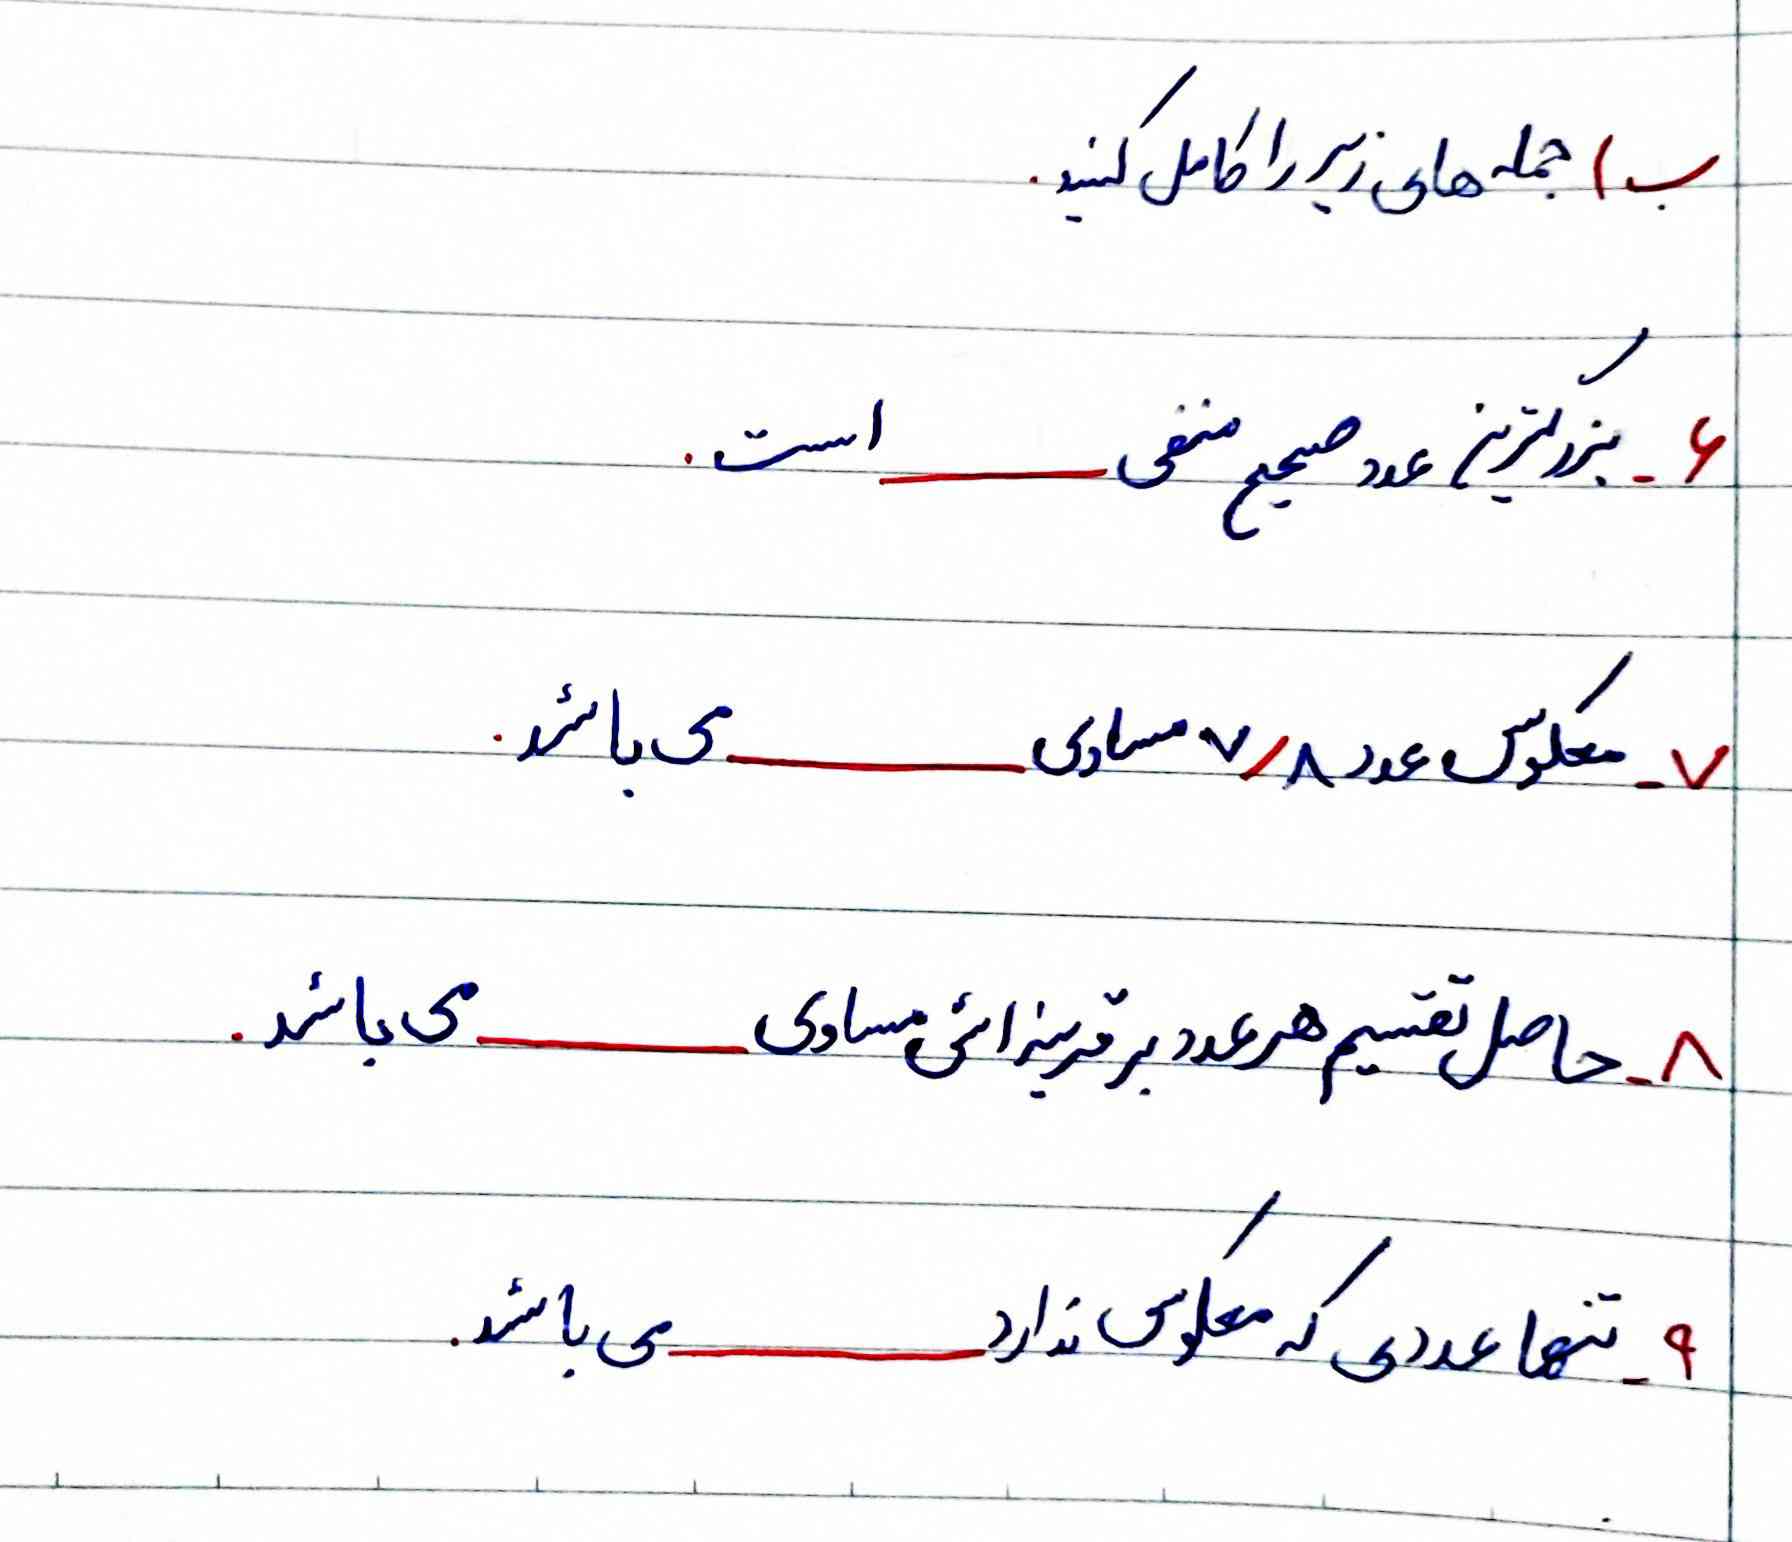 ب) جمله های زیر را کامل کنید.
۶- بزرگترین عدد صحیح منفی ______ است.
۷- معکوس عدد ۷/۸ مساوی ______ می باشد.
۸- حاصل تقسیم هر عدد بر قرینه اش مساوی ______ می باشد.
۹- تنها عددی که معکوس ندارد ______ می باشد.